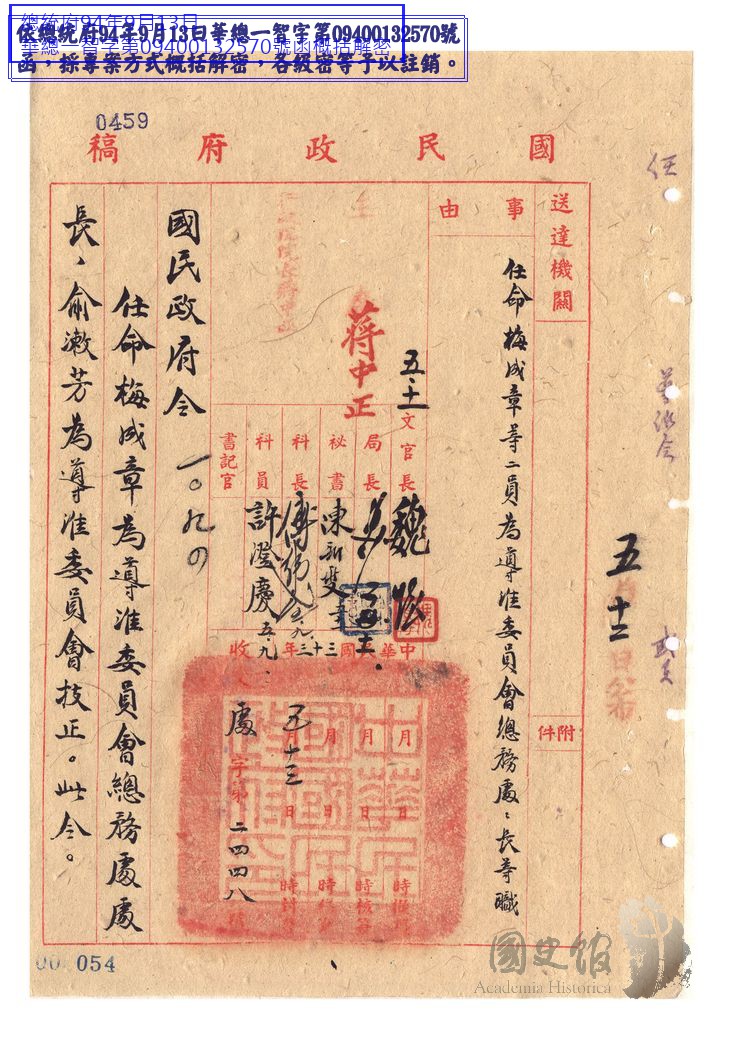 總統府94年9月13日
華總一智字第09400132570號函概括解密
依總統府94年9月13日華總一智字第09400132570號
函，採專案方式概括解密，各級密等予以註銷。
0459
國民政府稿
送達機關
附件
事由
任命梅成章等二員為導淮委員會總務處、長等職
五十二
蔣中正
五、十一
文官長
魏
局長
祕書
陳
科長
科員
許澄慶
五、九、
書記官
中華民國三十三年
收
月日時
月日時核
月日時
五月十三日時封
處字第二四四八號
國民政府令
一〇九〇
任命梅成章為導淮委員會總務處處
長、俞漱芳為導淮委員會技正。此令。
00 054
國史館
Academia Historica